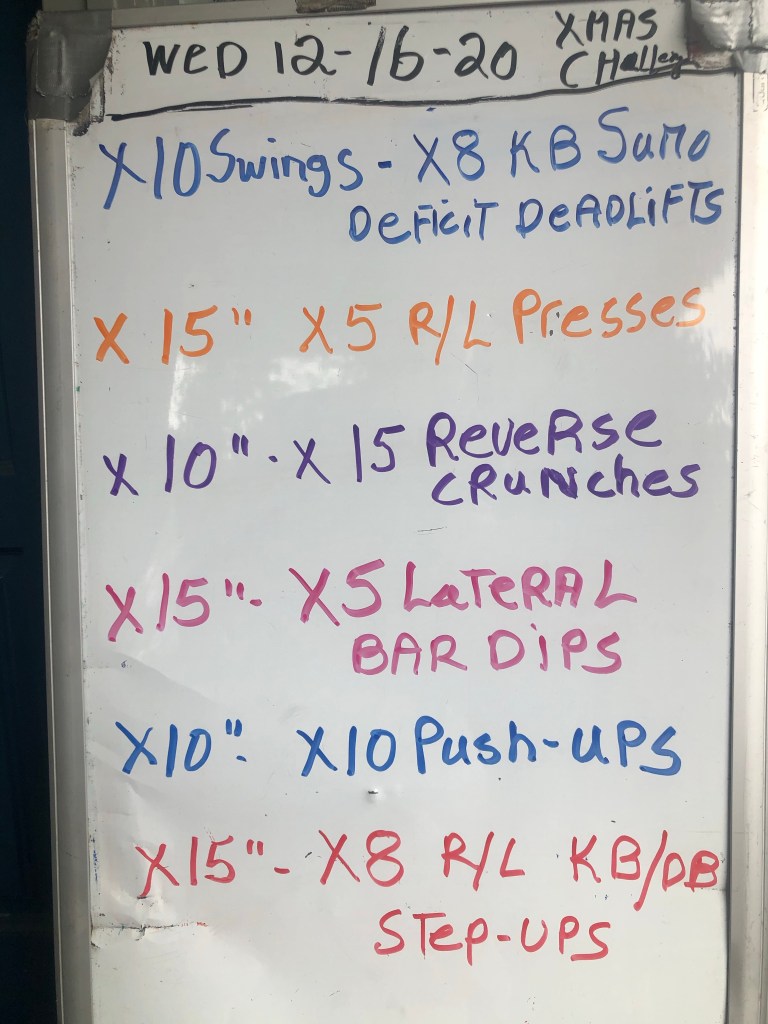 WED 12-16-20 XMAS
CHalleng
X10 Swings - X8 KB Sumo
DeFiciT DeADLiFTS
X 15" X5 R/L Presses
X 10" - X 15 ReveRse
CRuNches
X15" - X5 LaTeRAL
BAR DiPS
X10" - X10 Push-uPS
X15" - X8 R/L KB/DB
STep-UPS